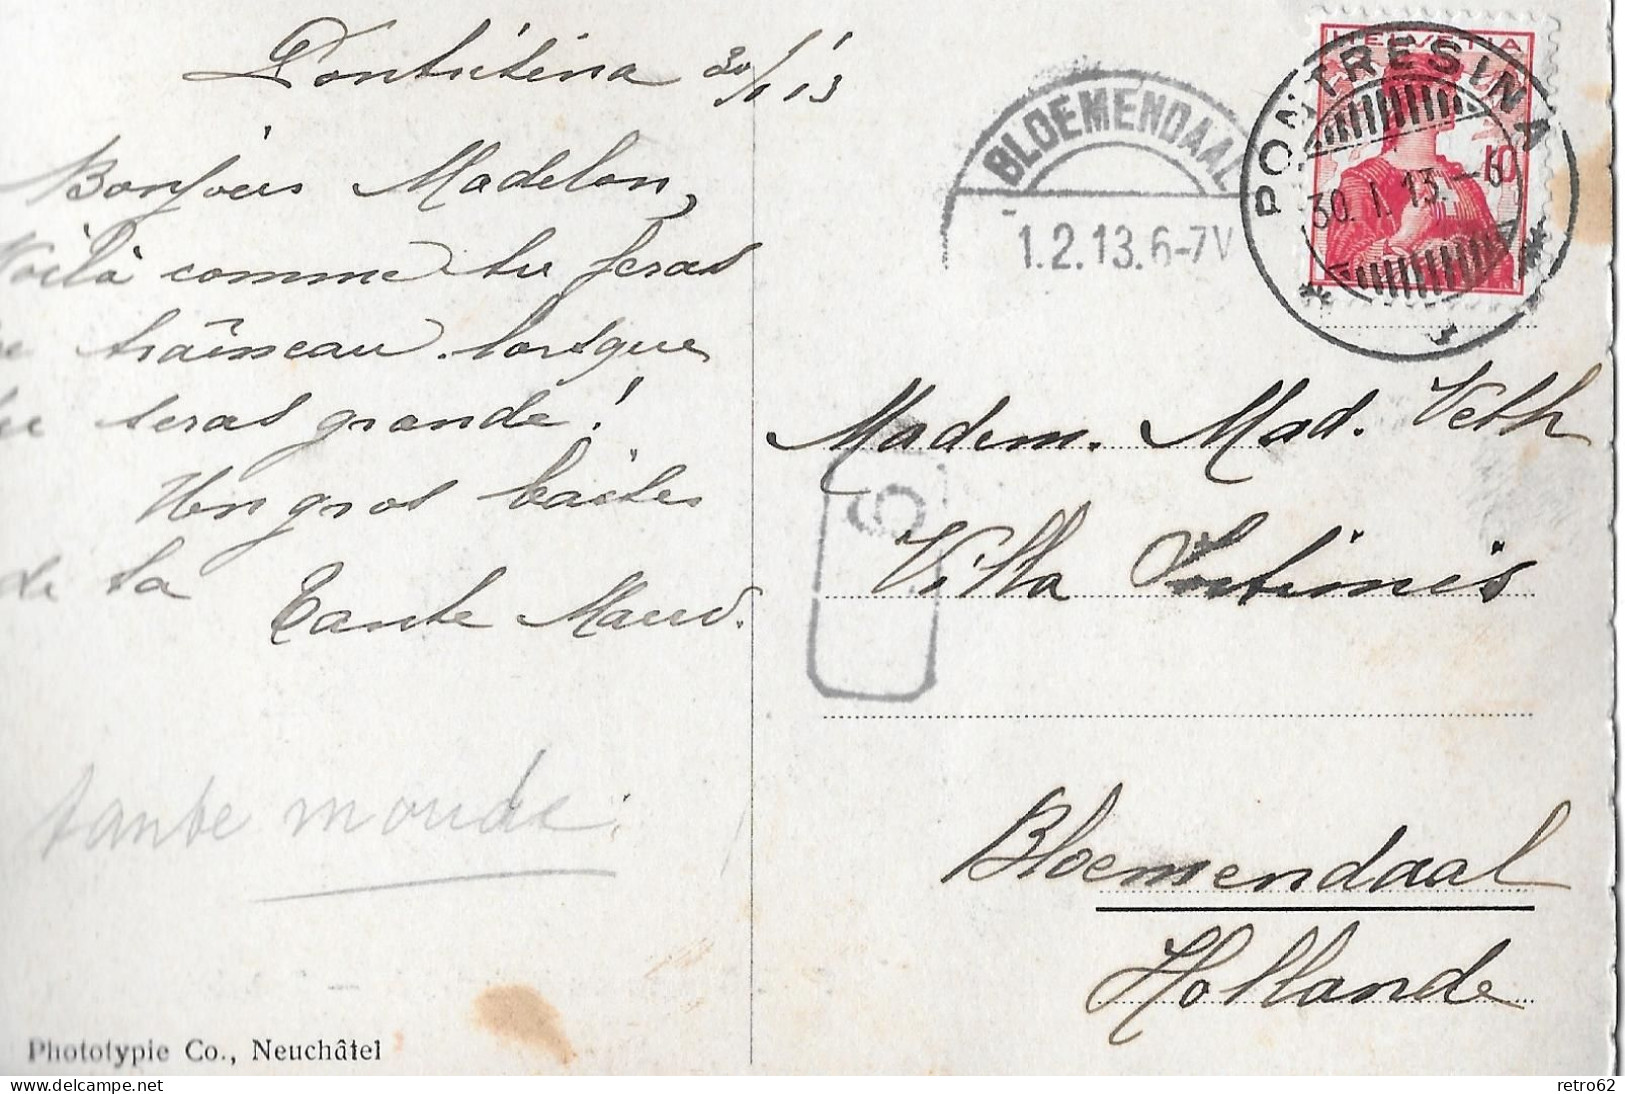 Pontresina 30/1 13
Bonjour Madelon,
Voilà comme tu feras
de traîneau lorsque
tu seras grande!
Un gros baiser
de ta
Tante Maud.
tante moude.
Phototypie Co., Neuchâtel
BLOEMENDAAL
1.2.13.6-7V
HELVETIA
10
PONTRESINA
30.I.13.-6
6
Madem. Mad. Veth
Villa Intimis
Bloemendaal
Hollande
retro62